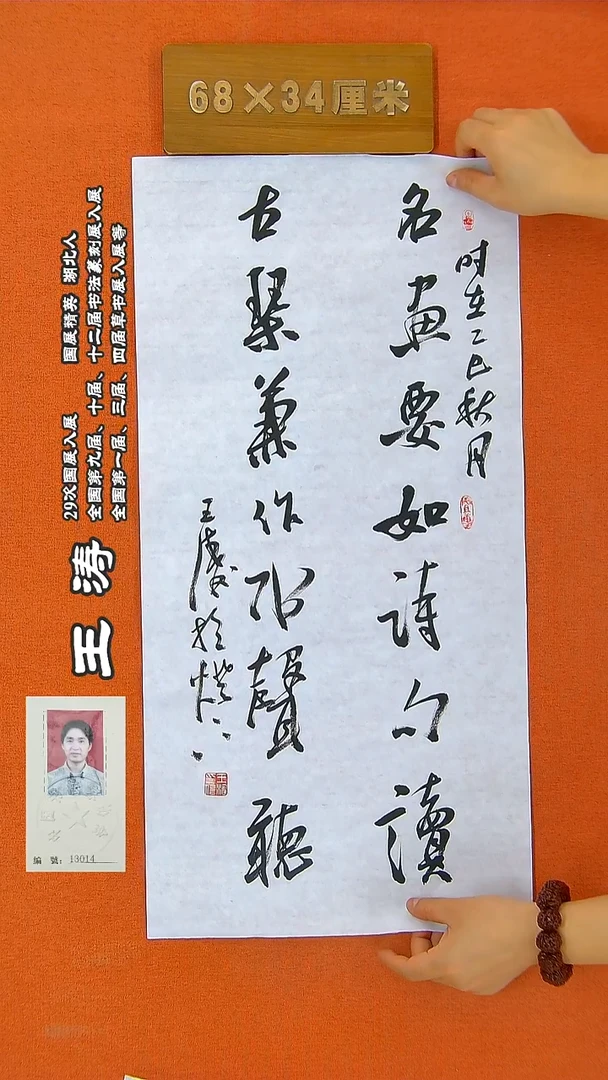 68×34厘米
名畫要如詩句讀
古琴兼作水聲聽
时在乙巳秋月
王涛
29次国展入展 国展精英 湖北人
全国第九届、十届、十二届书法篆刻展入展
全国第一届、三届、四届草书展入展等
編 號：13014